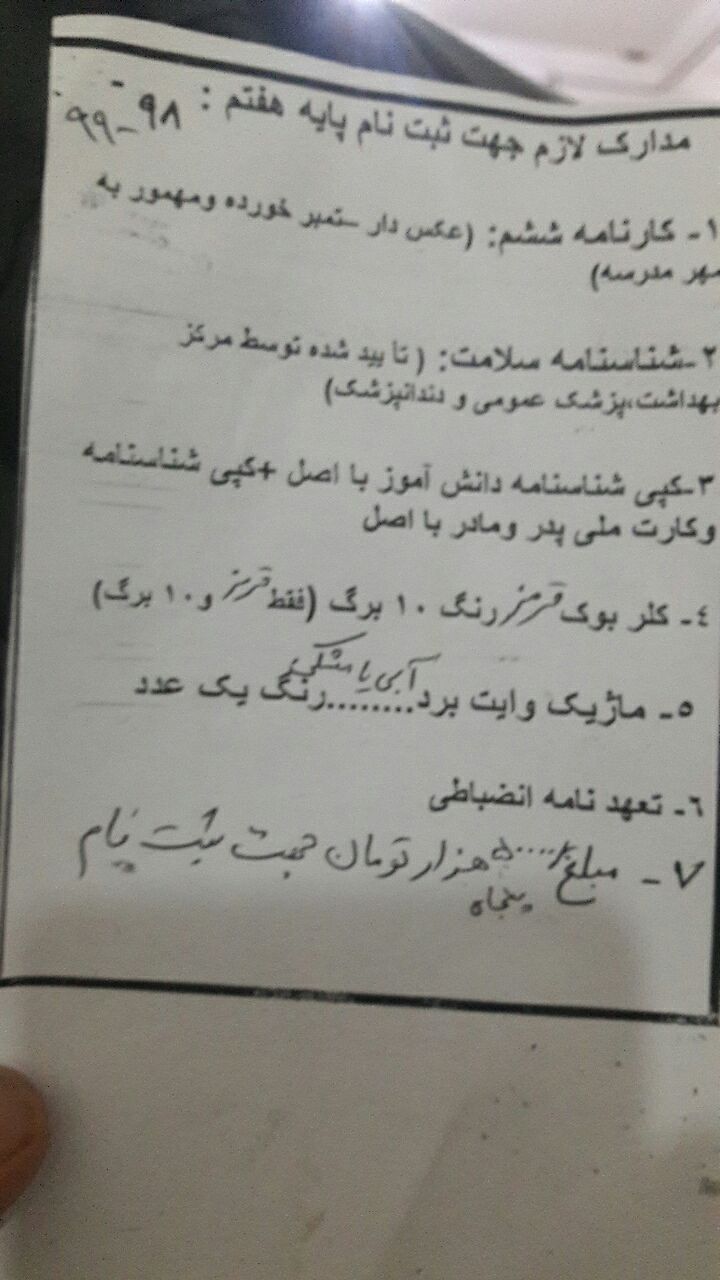 مدارک لازم جهت ثبت نام پایه هفتم : ۹۸ - ۹۹
۱- کارنامه ششم: (عکس دار –تمبر خورده ومهمور به
مهر مدرسه)
۲-شناسنامه سلامت: ( تأیید شده توسط مرکز
بهداشت،پزشک عمومی و دندانپزشک)
۳-کپی شناسنامه دانش آموز با اصل +کپی شناسنامه
وکارت ملی پدر ومادر با اصل
۴- کلر بوک قرمز رنگ ۱۰ برگ (فقط قرمز و ۱۰ برگ)
آبی یا مشکی
۵- ماژیک وایت برد........رنگ یک عدد
۶- تعهد نامه انضباطی
۷- مبلغ ۵۰۰۰۰/ هزار تومان جهت ثبت نام
پنجاه